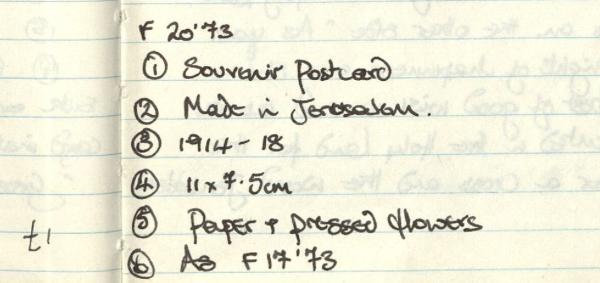 F 20'73
① Souvenir Postcard
② Made in Jerusalem.
③ 1914-18
④ 11 x 7.5cm
⑤ Paper + pressed flowers
⑥ As F17'73